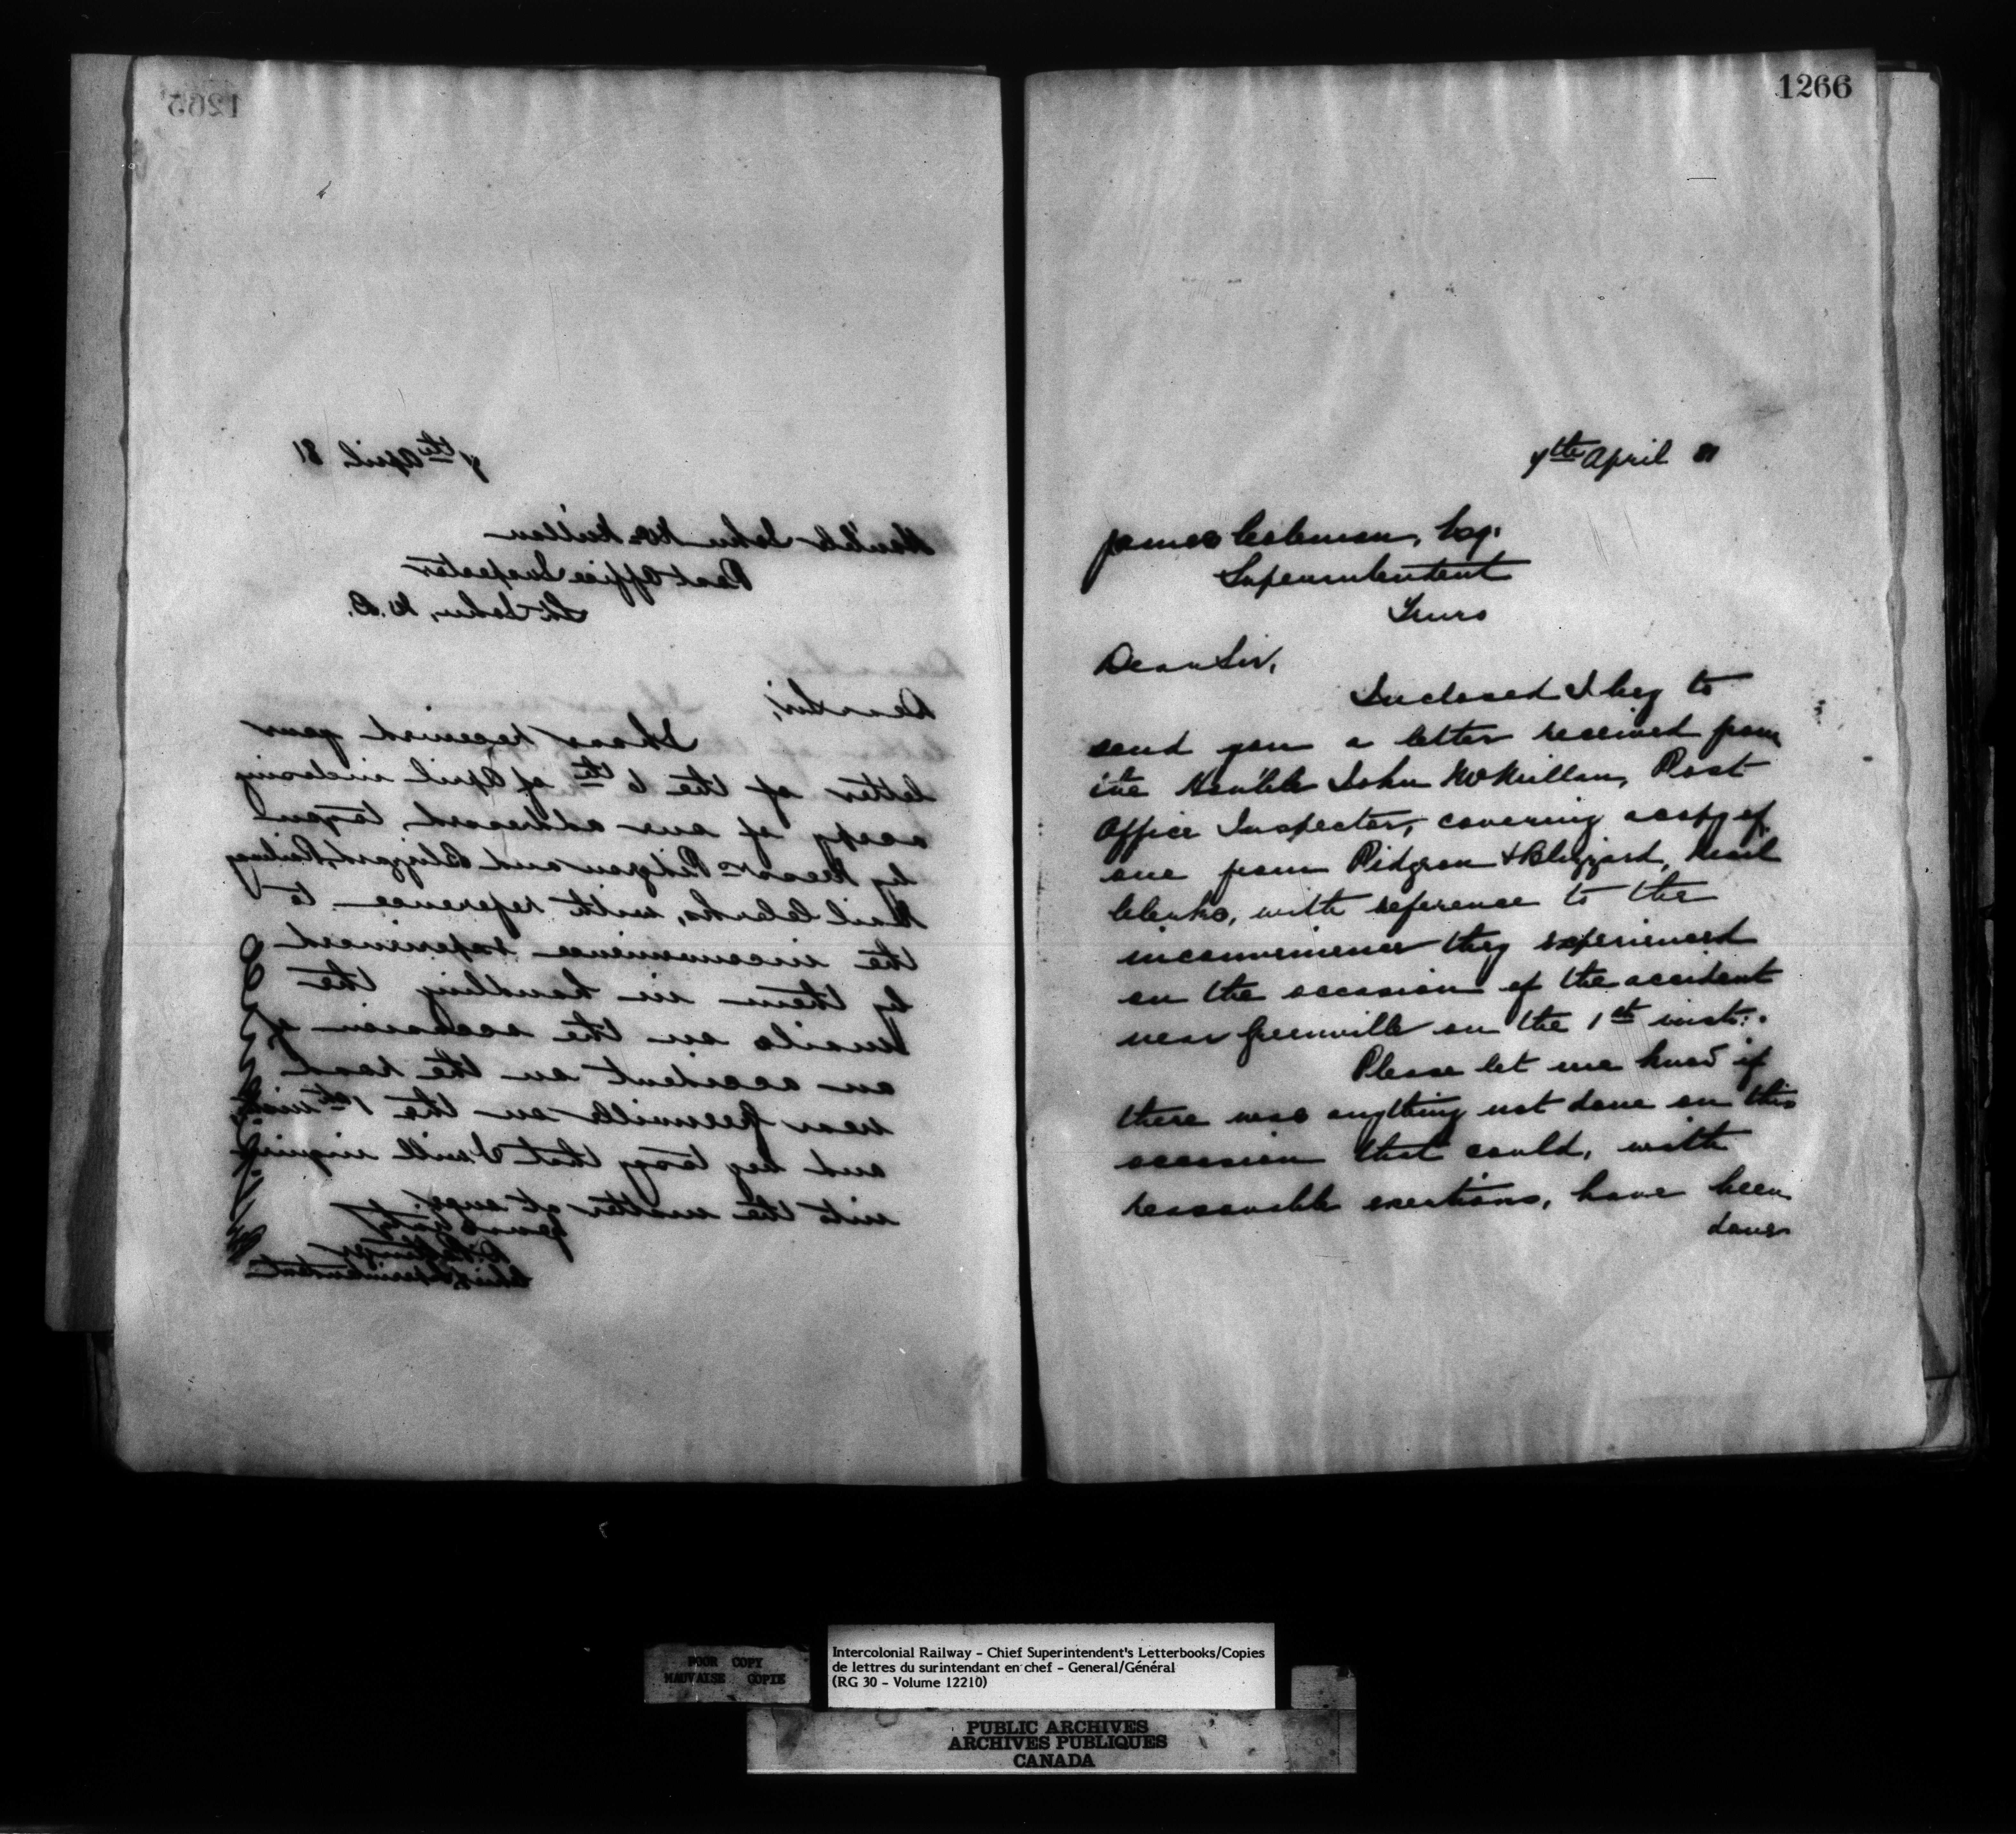 1265
7th April 81
Hon'ble John McMillan
Post Office Inspector
St. John, N.B.
Dear Sir,
I have received your
letter of the 6th of April inclosing
a copy of one addressed to you
by Messrs Pidgeon and Blizzard, Railway
Mail Clerks, with reference to
the inconvenience experienced
by them in handling the
mails on the occasion of
an accident on the road
near Greenville on the 1st inst.
and beg to say that I will inquire
into the matter at once.
Yours truly
D. Pottinger
Chief Superintendent
1266
7th April 81
James Coleman, Esq.
Superintendent
Truro
Dear Sir,
Inclosed I beg to
send you a letter received from
the Hon'ble John McMillan, Post
Office Inspector, covering a copy of
one from Pidgeon & Blizzard, Mail
Clerks, with reference to the
inconvenience they experienced
on the occasion of the accident
near Greenville on the 1st inst.
Please let me know if
there was anything not done on this
occasion that could, with
reasonable exertions, have been
done
POOR COPY
MAUVAISE COPIE
Intercolonial Railway - Chief Superintendent's Letterbooks/Copies
de lettres du surintendant en chef - General/Général
(RG 30 - Volume 12210)
PUBLIC ARCHIVES
ARCHIVES PUBLIQUES
CANADA